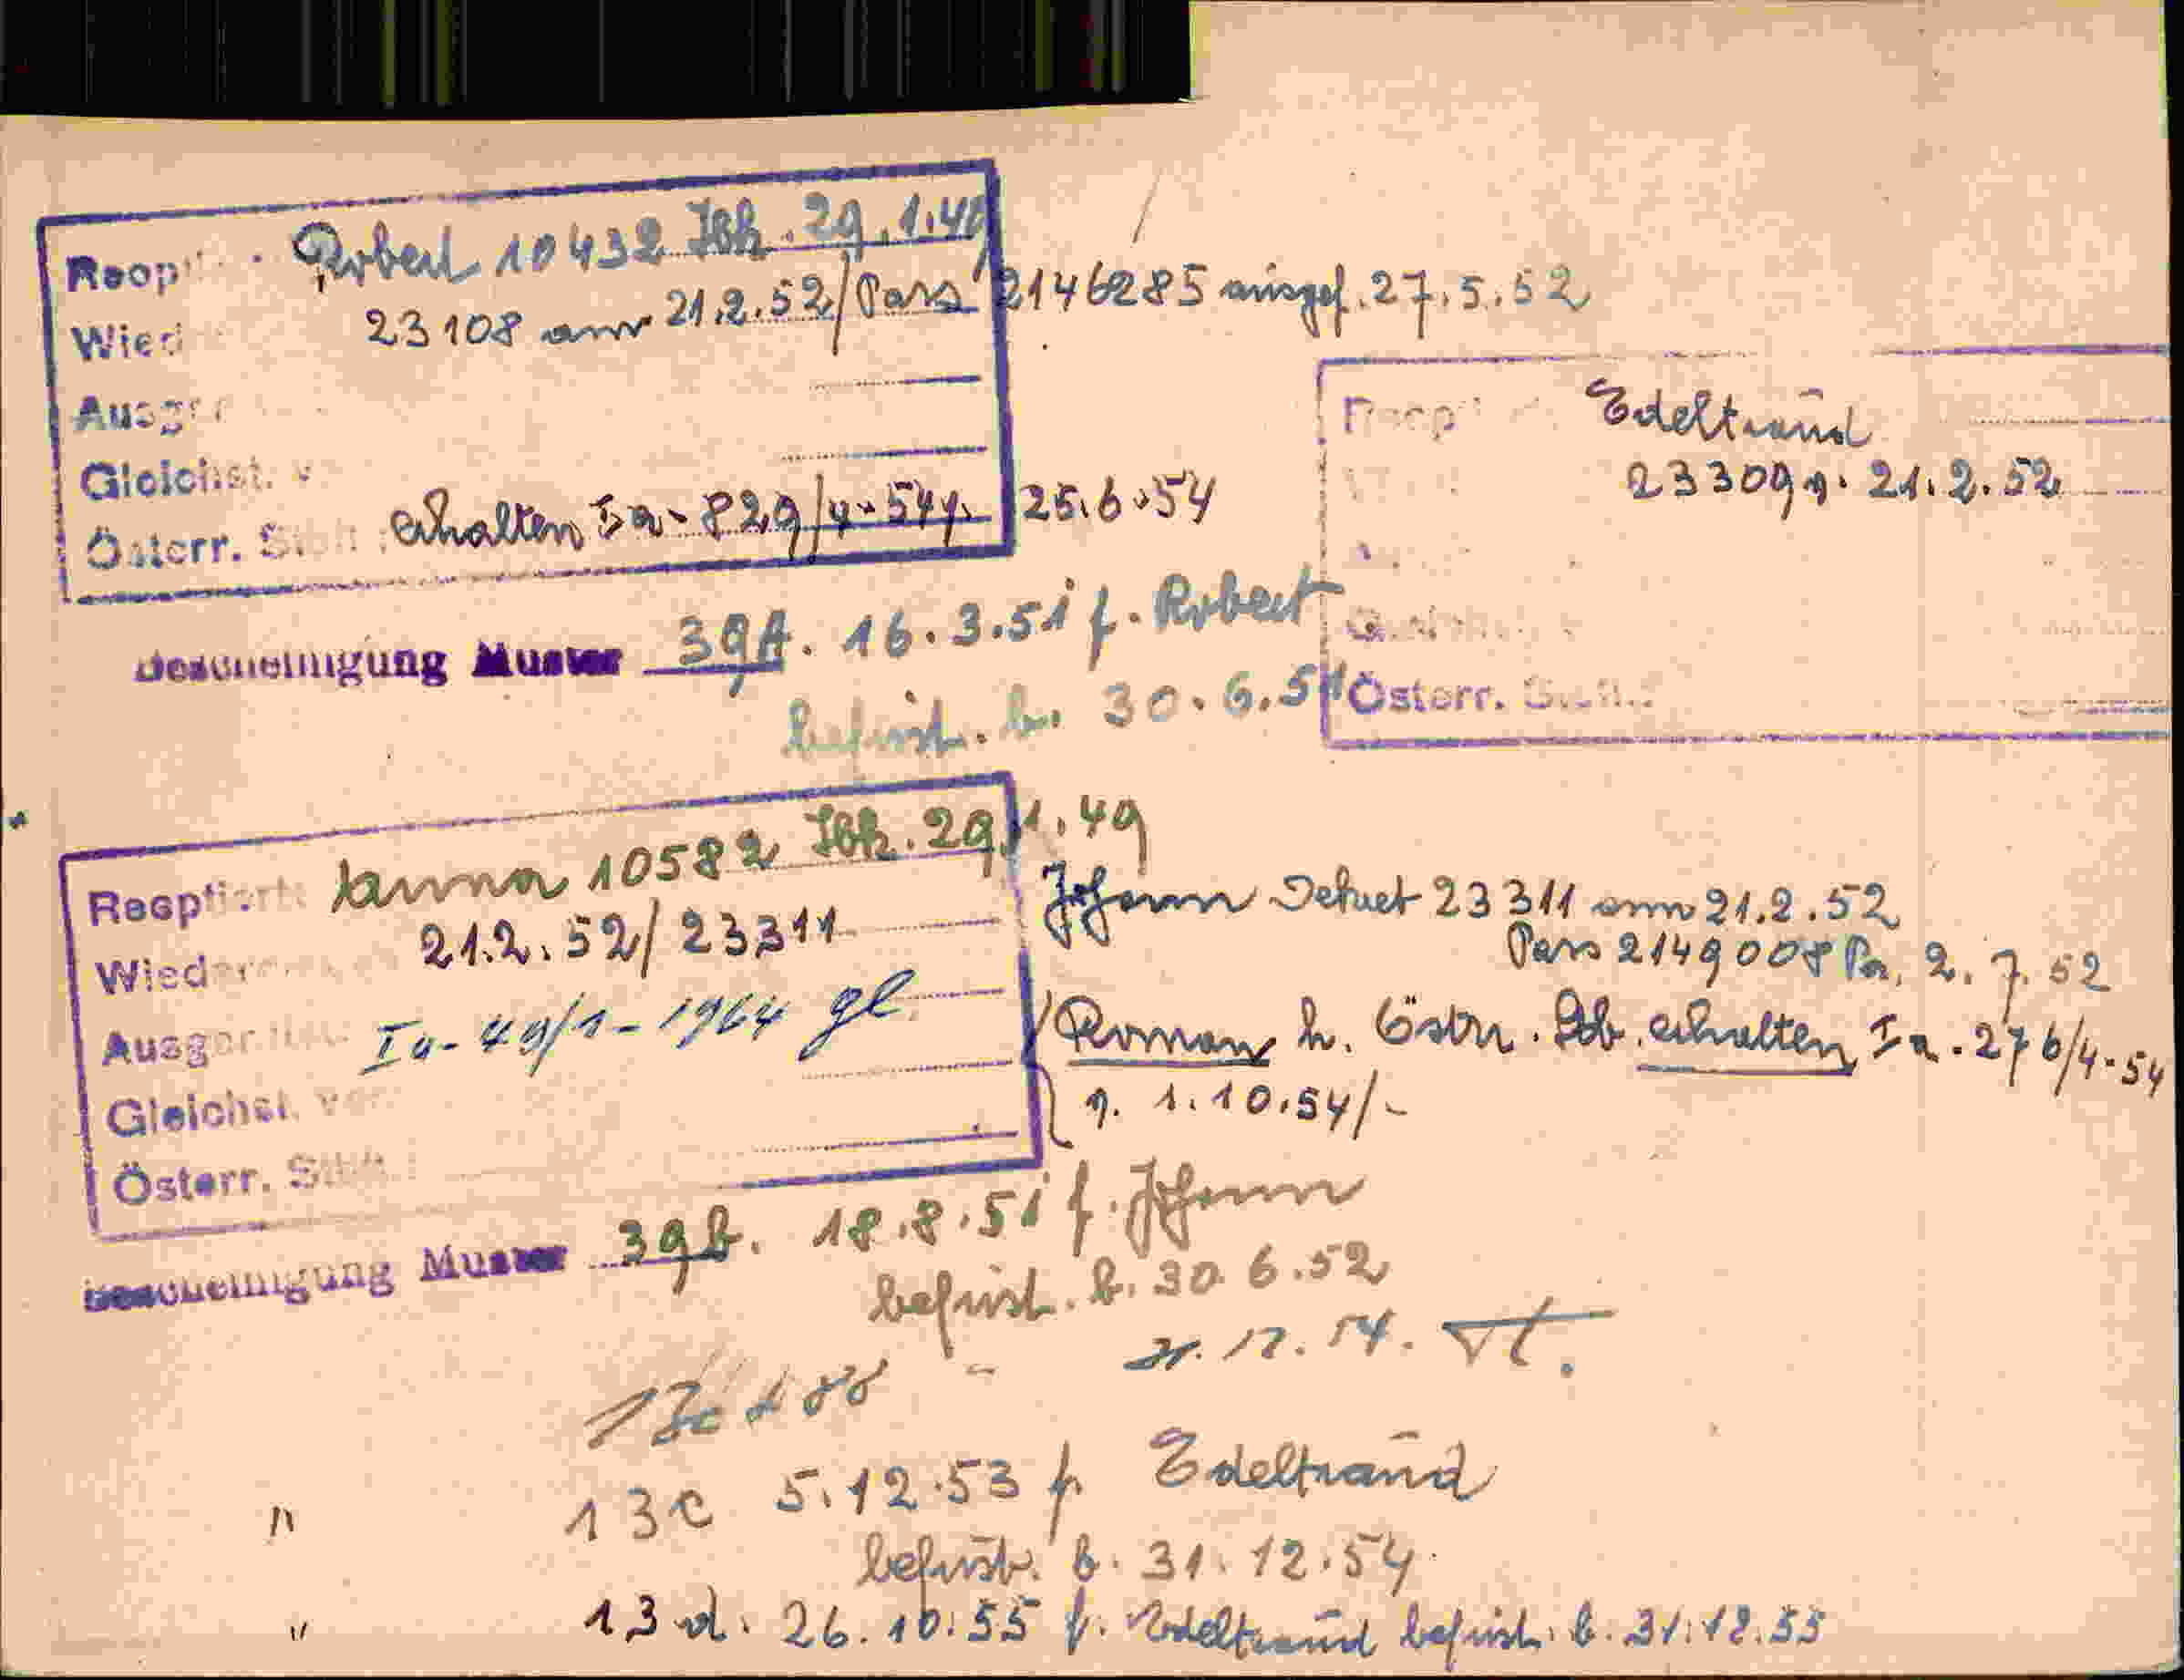 Reop Robert 10432 Ibk. 29.1.49
Wied 23108 am 21.2.52/Pass 2146285 ausgef. 27.5.52
Ausge
Gleichst. v
Österr. erhalten Ia-829/4-54 25.6.54
Bescheinigung Muster 39A. 16.3.51 f. Robert
befrist. b. 30.6.51
Reop Edeltraud
23309 v. 21.2.52
Österr.
Reoptiert: 10582 Ibk. 29.1.49
Wieder 21.2.52/23311
Ausge Ia-49/1-1964 gl
Gleichst. v
Österr. Stb
Johann Dekret 23311 am 21.2.52
Pass 2149008 2.7.52
Roman h. Östr. Stb. erhalten Ia.276/4-54
v. 1.10.54/-
Bescheinigung Muster 39b. 18.8.51 f. Johann
befrist. b. 30.6.52
" 13c 5.12.53 f. Edeltraud
befrist. b. 31.12.54
" 13d. 26.10.55 f. Edeltraud befrist. b. 31.12.55